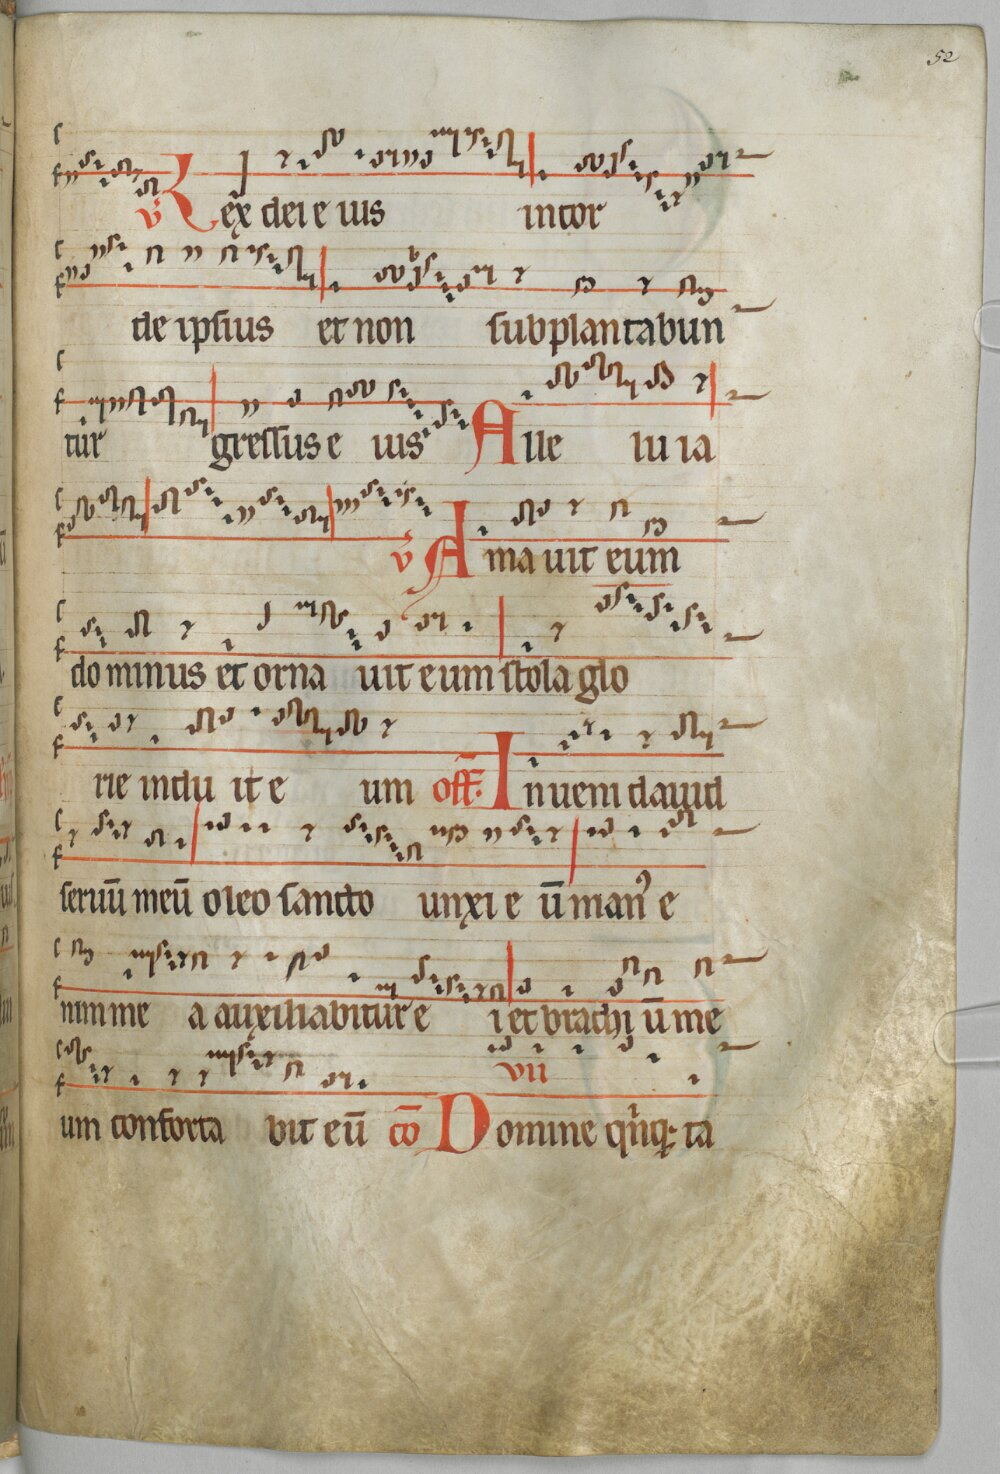 52
℣ Lex dei eius in cor
de ipsius et non subplantabun
tur gressus eius Alle lu ia
℣ Amauit eum
dominus et ornauit eum stola glo
rie induit eum off. Inueni dauid
seruū meū oleo sancto unxi eū man᾿ e
nim me a auxiliabitur ei et brachiū me
um confortabit eū cō Domine
vii